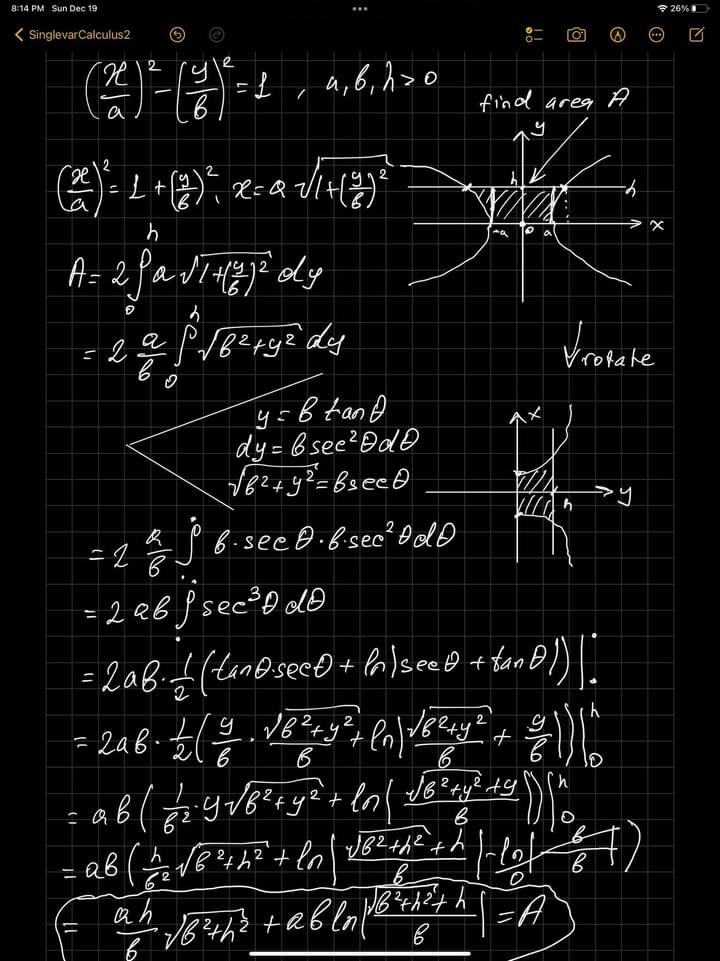 8:14 PM Sun Dec 19
26%
SinglevarCalculus2
(x/a)² - (y/b)² = 1 , a, b, h > 0
find area A
y
h
h
-a 0 a
x
(x/a)² = 1 + (y/b)², x = a √(1+(y/b)²)
A = 2 ∫₀ʰ a √(1+(y/b)²) dy
= 2 a/b ∫₀ʰ √(b²+y²) dy
rotate
y = b tanθ
dy = b sec²θ dθ
√(b²+y²) = b secθ
x
y
h
= 2 a/b ∫ b·secθ·b·sec²θ dθ
= 2ab ∫ sec³θ dθ
= 2ab·1/2 (tanθ·secθ + ln|secθ + tanθ|)|
= 2ab·1/2 (y/b · √(b²+y²)/b + ln|√(b²+y²)/b + y/b|)|₀ʰ
= ab (1/b²·y√(b²+y²) + ln|(√(b²+y²)+y)/b|)|₀ʰ
= ab (h/b² √(b²+h²) + ln|(√(b²+h²)+h)/b| - ln|b/b|)
0
= ah/b √(b²+h²) + ab ln|(√(b²+h²)+h)/b| = A